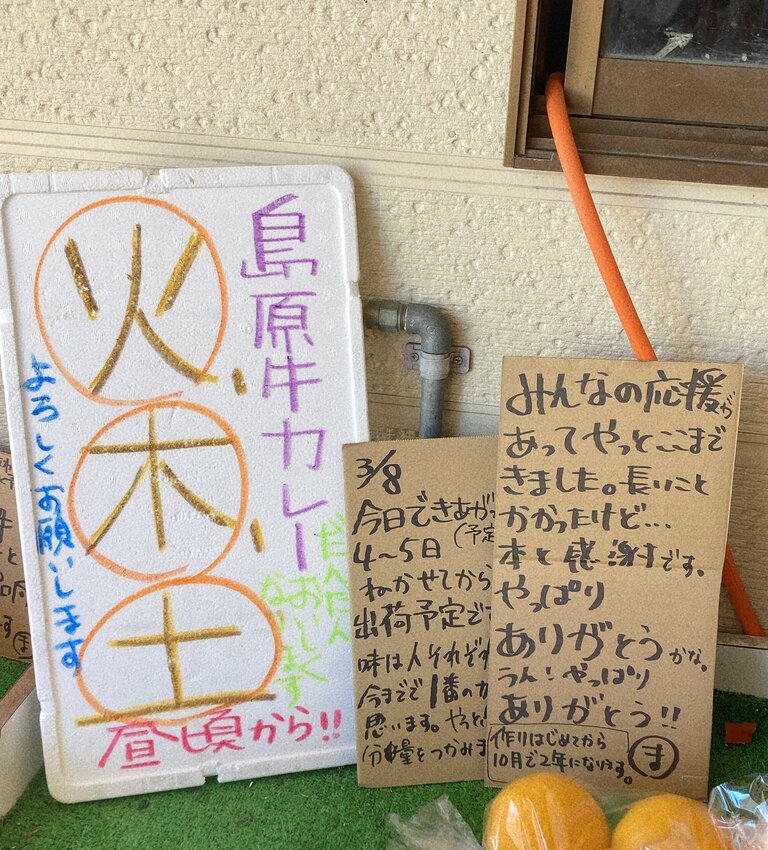 島原牛カレー
火、
木、
土
だんだん
おいしく
なります
よろしくお願いします
昼頃から!!
3/8
今日できあが
(予定
4〜5日
ねかせてから
出荷予定で
味は人それぞれ
今までで1番のカ
思います。やっと
分量をつかみま
みんなの応援が
あってやっとここまで
きました。長いこと
かかったけど...
本と感謝です。
やっぱり
ありがとうかな。
うん!やっぱり
ありがとう!!
作りはじめてから
10月で2年になります。
ま